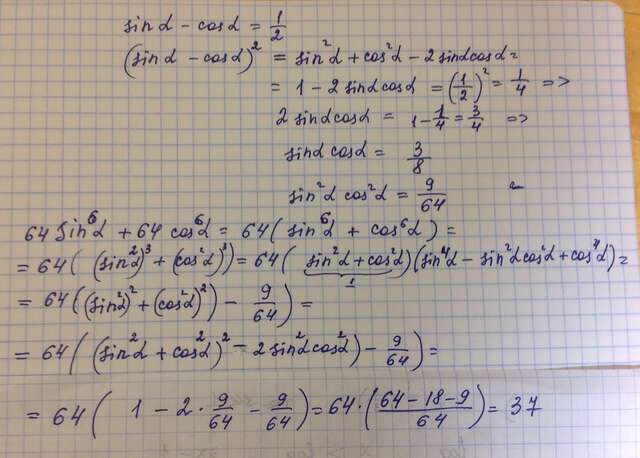 sinα − cosα = 1/2
(sinα − cosα)² = sin²α + cos²α − 2sinαcosα =
= 1 − 2sinαcosα = (1/2)² = 1/4 =>
2sinαcosα = 1 − 1/4 = 3/4 =>
sinαcosα = 3/8
sin²α cos²α = 9/64
64 Sin⁶α + 64 cos⁶α = 64(sin⁶α + cos⁶α) =
= 64((sin²α)³ + (cos²α)³) = 64(sin²α + cos²α)(sin⁴α − sin²αcos²α + cos⁴α) =
1
= 64((sin²α)² + (cos²α)²) − 9/64) =
= 64((sin²α + cos²α)² − 2sin²αcos²α) − 9/64) =
= 64(1 − 2 · 9/64 − 9/64) = 64 · (64 − 18 − 9/64) = 37